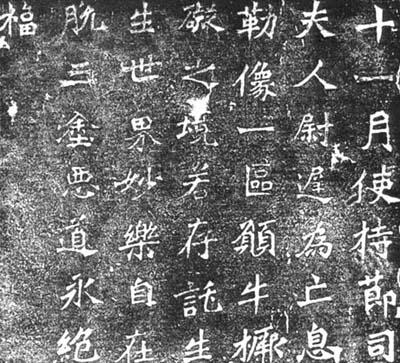 十一月使持節司
夫人尉遲為亡息
勒像一區願牛橛
礙之境若存託生
生世界妙樂自在
脫三塗惡道永絕
福